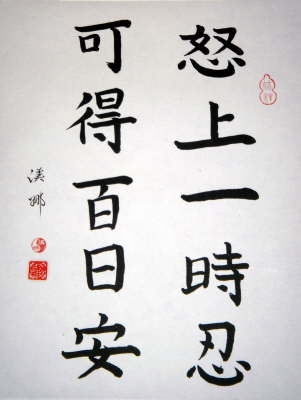 怒上一時忍
可得百日安
漢娜